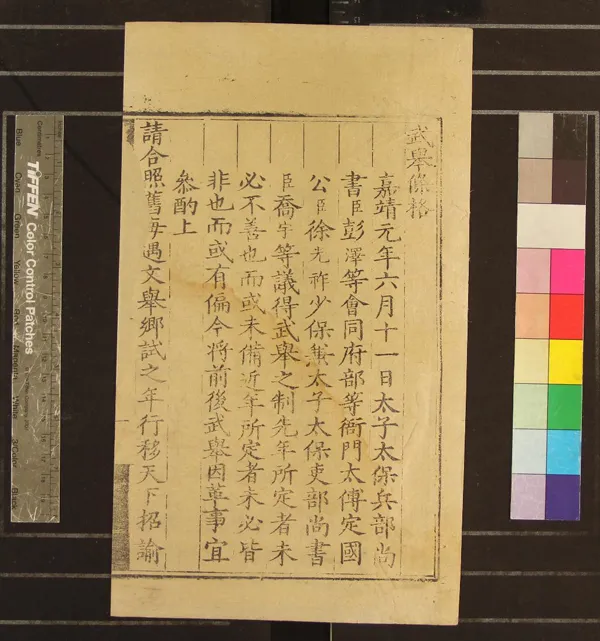 武舉條格
嘉靖元年六月十一日太子太保兵部尚
書臣彭澤等會同府部等衙門太傅定國
公臣徐光祚少保兼太子太保吏部尚書
臣喬宇等議得武舉之制先年所定者未
必不善也而或未備近年所定者未必皆
非也而或有偏今將前後武舉因革事宜
叅酌上
請合照舊每遇文舉鄉試之年行移天下招諭
TIFFEN Color Control Patches
Blue
Cyan
Green
Yellow
Red
Magenta
White
3/Color
Black
Centimetres